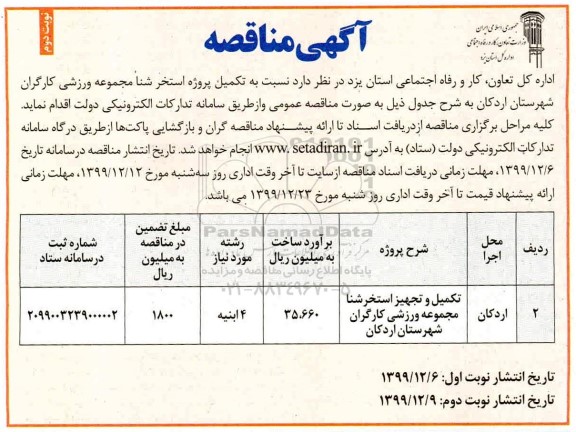 نوبت دوم
جمهوری اسلامی ایران
وزارت تعاون، کار و رفاه اجتماعی
اداره کل استان یزد
آگهی مناقصه
اداره کل تعاون، کار و رفاه اجتماعی استان یزد در نظر دارد نسبت به تکمیل پروژه استخر شنا مجموعه ورزشی کارگران
شهرستان اردکان به شرح جدول ذیل به صورت مناقصه عمومی وازطریق سامانه تدارکات الکترونیکی دولت اقدام نماید.
کلیه مراحل برگزاری مناقصه ازدریافت اسناد تا ارائه پیشنهاد مناقصه گران و بازگشایی پاکت‌ها ازطریق درگاه سامانه
تدارکات الکترونیکی دولت (ستاد) به آدرس www. setadiran. ir انجام خواهد شد. تاریخ انتشار مناقصه درسامانه تاریخ
۱۳۹۹/۱۲/۶، مهلت زمانی دریافت اسناد مناقصه ازسایت تا آخر وقت اداری روز سه‌شنبه مورخ ۱۳۹۹/۱۲/۱۲، مهلت زمانی
ارائه پیشنهاد قیمت تا آخر وقت اداری روز شنبه مورخ ۱۳۹۹/۱۲/۲۳ می باشد.
ردیف
محل اجرا
شرح پروژه
برآورد ساخت به میلیون ریال
رشته مورد نیاز
مبلغ تضمین در مناقصه به میلیون ریال
شماره ثبت درسامانه ستاد
۲
اردکان
تکمیل و تجهیز استخر شنا مجموعه ورزشی کارگران شهرستان اردکان
۳۵.۶۶۰
۴ ابنیه
۱۸۰۰
۲۰۹۹۰۰۳۲۳۹۰۰۰۰۰۲
ParsNamadData
پایگاه اطلاع رسانی مناقصه و مزایده
۰۲۱-۸۸۳۴۹۶۷۰-۵
تاریخ انتشار نوبت اول: ۱۳۹۹/۱۲/۶
تاریخ انتشار نوبت دوم: ۱۳۹۹/۱۲/۹